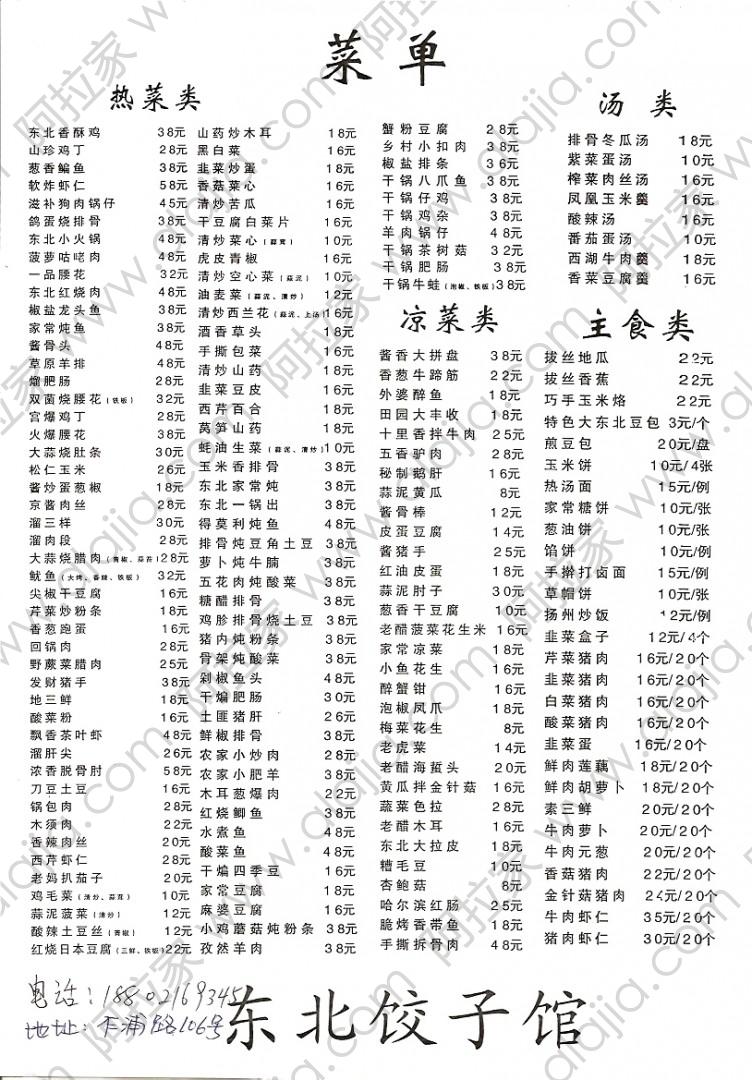 菜单
热菜类
东北香酥鸡 38元
山珍鸡丁 28元
葱香鳊鱼 38元
软炸虾仁 58元
滋补狗肉锅仔 45元
鸽蛋烧排骨 38元
东北小火锅 48元
菠萝咕咾肉 48元
一品腰花 32元
东北红烧肉 48元
椒盐龙头鱼 38元
家常炖鱼 38元
酱骨头 48元
草原羊排 48元
熘肥肠 28元
双菌烧腰花(铁板) 32元
宫爆鸡丁 28元
火爆腰花 38元
大蒜烧肚条 30元
松仁玉米 26元
酱炒蛋葱椒 18元
京酱肉丝 28元
溜三样 30元
溜肉段 28元
大蒜烧腊肉(青椒、蒜苔) 28元
鱿鱼(大烤、香辣、铁板) 32元
尖椒干豆腐 18元
芹菜炒粉条 18元
香葱跑蛋 16元
回锅肉 28元
野蕨菜腊肉 25元
发财猪手 38元
地三鲜 18元
酸菜粉 16元
飘香茶叶虾 48元
溜肝尖 26元
浓香脱骨肘 58元
刀豆土豆 16元
锅包肉 28元
木须肉 22元
香辣肉丝 20元
西芹虾仁 28元
老妈扒茄子 20元
鸡毛菜(清炒、蒜茸) 10元
蒜泥菠菜(清炒) 12元
酸辣土豆丝(青椒) 12元
红烧日本豆腐(三鲜、铁板) 22元
山药炒木耳 18元
黑白菜 16元
韭菜炒蛋 18元
香菇菜心 16元
清炒苦瓜 16元
干豆腐白菜片 16元
清炒菜心(蒜茸) 10元
虎皮青椒 16元
清炒空心菜(蒜泥) 10元
油麦菜(蒜泥、清炒) 12元
清炒西兰花(蒜泥、上汤) 16元
酒香草头 18元
手撕包菜 16元
清炒山药 18元
韭菜豆皮 16元
西芹百合 18元
莴笋山药 18元
蚝油生菜(蒜泥、清炒) 10元
玉米香排骨 38元
东北家常炖 38元
东北一锅出 38元
得莫利炖鱼 48元
排骨炖豆角土豆 38元
萝卜炖牛腩 38元
五花肉炖酸菜 38元
糖醋排骨 38元
鸡胗排骨烧土豆 38元
猪肉炖粉条 38元
骨架炖酸菜 38元
剁椒鱼头 48元
干煸肥肠 30元
土匪猪肝 26元
鲜椒排骨 38元
农家小炒肉 28元
农家小肥羊 38元
木耳葱爆肉 22元
红烧鲫鱼 38元
水煮鱼 48元
酸菜鱼 48元
干煸四季豆 16元
家常豆腐 18元
麻婆豆腐 16元
小鸡蘑菇炖粉条 38元
孜然羊肉 38元
蟹粉豆腐 28元
乡村小扣肉 38元
椒盐排条 36元
干锅八爪鱼 38元
干锅仔鸡 38元
干锅鸡杂 38元
羊肉锅仔 48元
干锅茶树菇 32元
干锅肥肠 38元
干锅牛蛙(泡椒、铁板) 38元
凉菜类
酱香大拼盘 38元
香葱牛蹄筋 22元
外婆醉鱼 18元
田园大丰收 18元
十里香拌牛肉 25元
五香驴肉 28元
秘制鹅肝 16元
蒜泥黄瓜 8元
酱骨棒 12元
皮蛋豆腐 14元
酱猪手 25元
红油皮蛋 18元
蒜泥肘子 30元
葱香干豆腐 10元
老醋菠菜花生米 16元
家常凉菜 18元
小鱼花生 16元
醉蟹钳 16元
泡椒凤爪 18元
梅菜花生 8元
老虎菜 14元
老醋海蜇头 20元
黄瓜拌金针菇 16元
蔬菜色拉 28元
老醋木耳 16元
东北大拉皮 18元
糟毛豆 10元
杏鲍菇 18元
哈尔滨红肠 25元
脆烤香带鱼 18元
手撕拆骨肉 48元
汤类
排骨冬瓜汤 18元
紫菜蛋汤 10元
榨菜肉丝汤 16元
凤凰玉米羹 16元
酸辣汤 16元
番茄蛋汤 10元
西湖牛肉羹 18元
香菜豆腐羹 16元
主食类
拔丝地瓜 22元
拔丝香蕉 22元
巧手玉米烙 22元
特色大东北豆包 3元/个
煎豆包 20元/盘
玉米饼 10元/4张
热汤面 15元/例
家常糖饼 10元/张
葱油饼 10元/张
馅饼 10元/例
手擀打卤面 15元/例
草帽饼 10元/张
扬州炒饭 12元/例
韭菜盒子 12元/4个
芹菜猪肉 16元/20个
韭菜猪肉 16元/20个
白菜猪肉 16元/20个
酸菜猪肉 16元/20个
韭菜蛋 16元/20个
鲜肉莲藕 18元/20个
鲜肉胡萝卜 18元/20个
素三鲜 20元/20个
牛肉萝卜 20元/20个
牛肉元葱 20元/20个
香菇猪肉 22元/20个
金针菇猪肉 24元/20个
牛肉虾仁 35元/20个
猪肉虾仁 30元/20个
电话:18802169345
地址:乍浦路106号
东北饺子馆
阿拉家 www.alajia.com